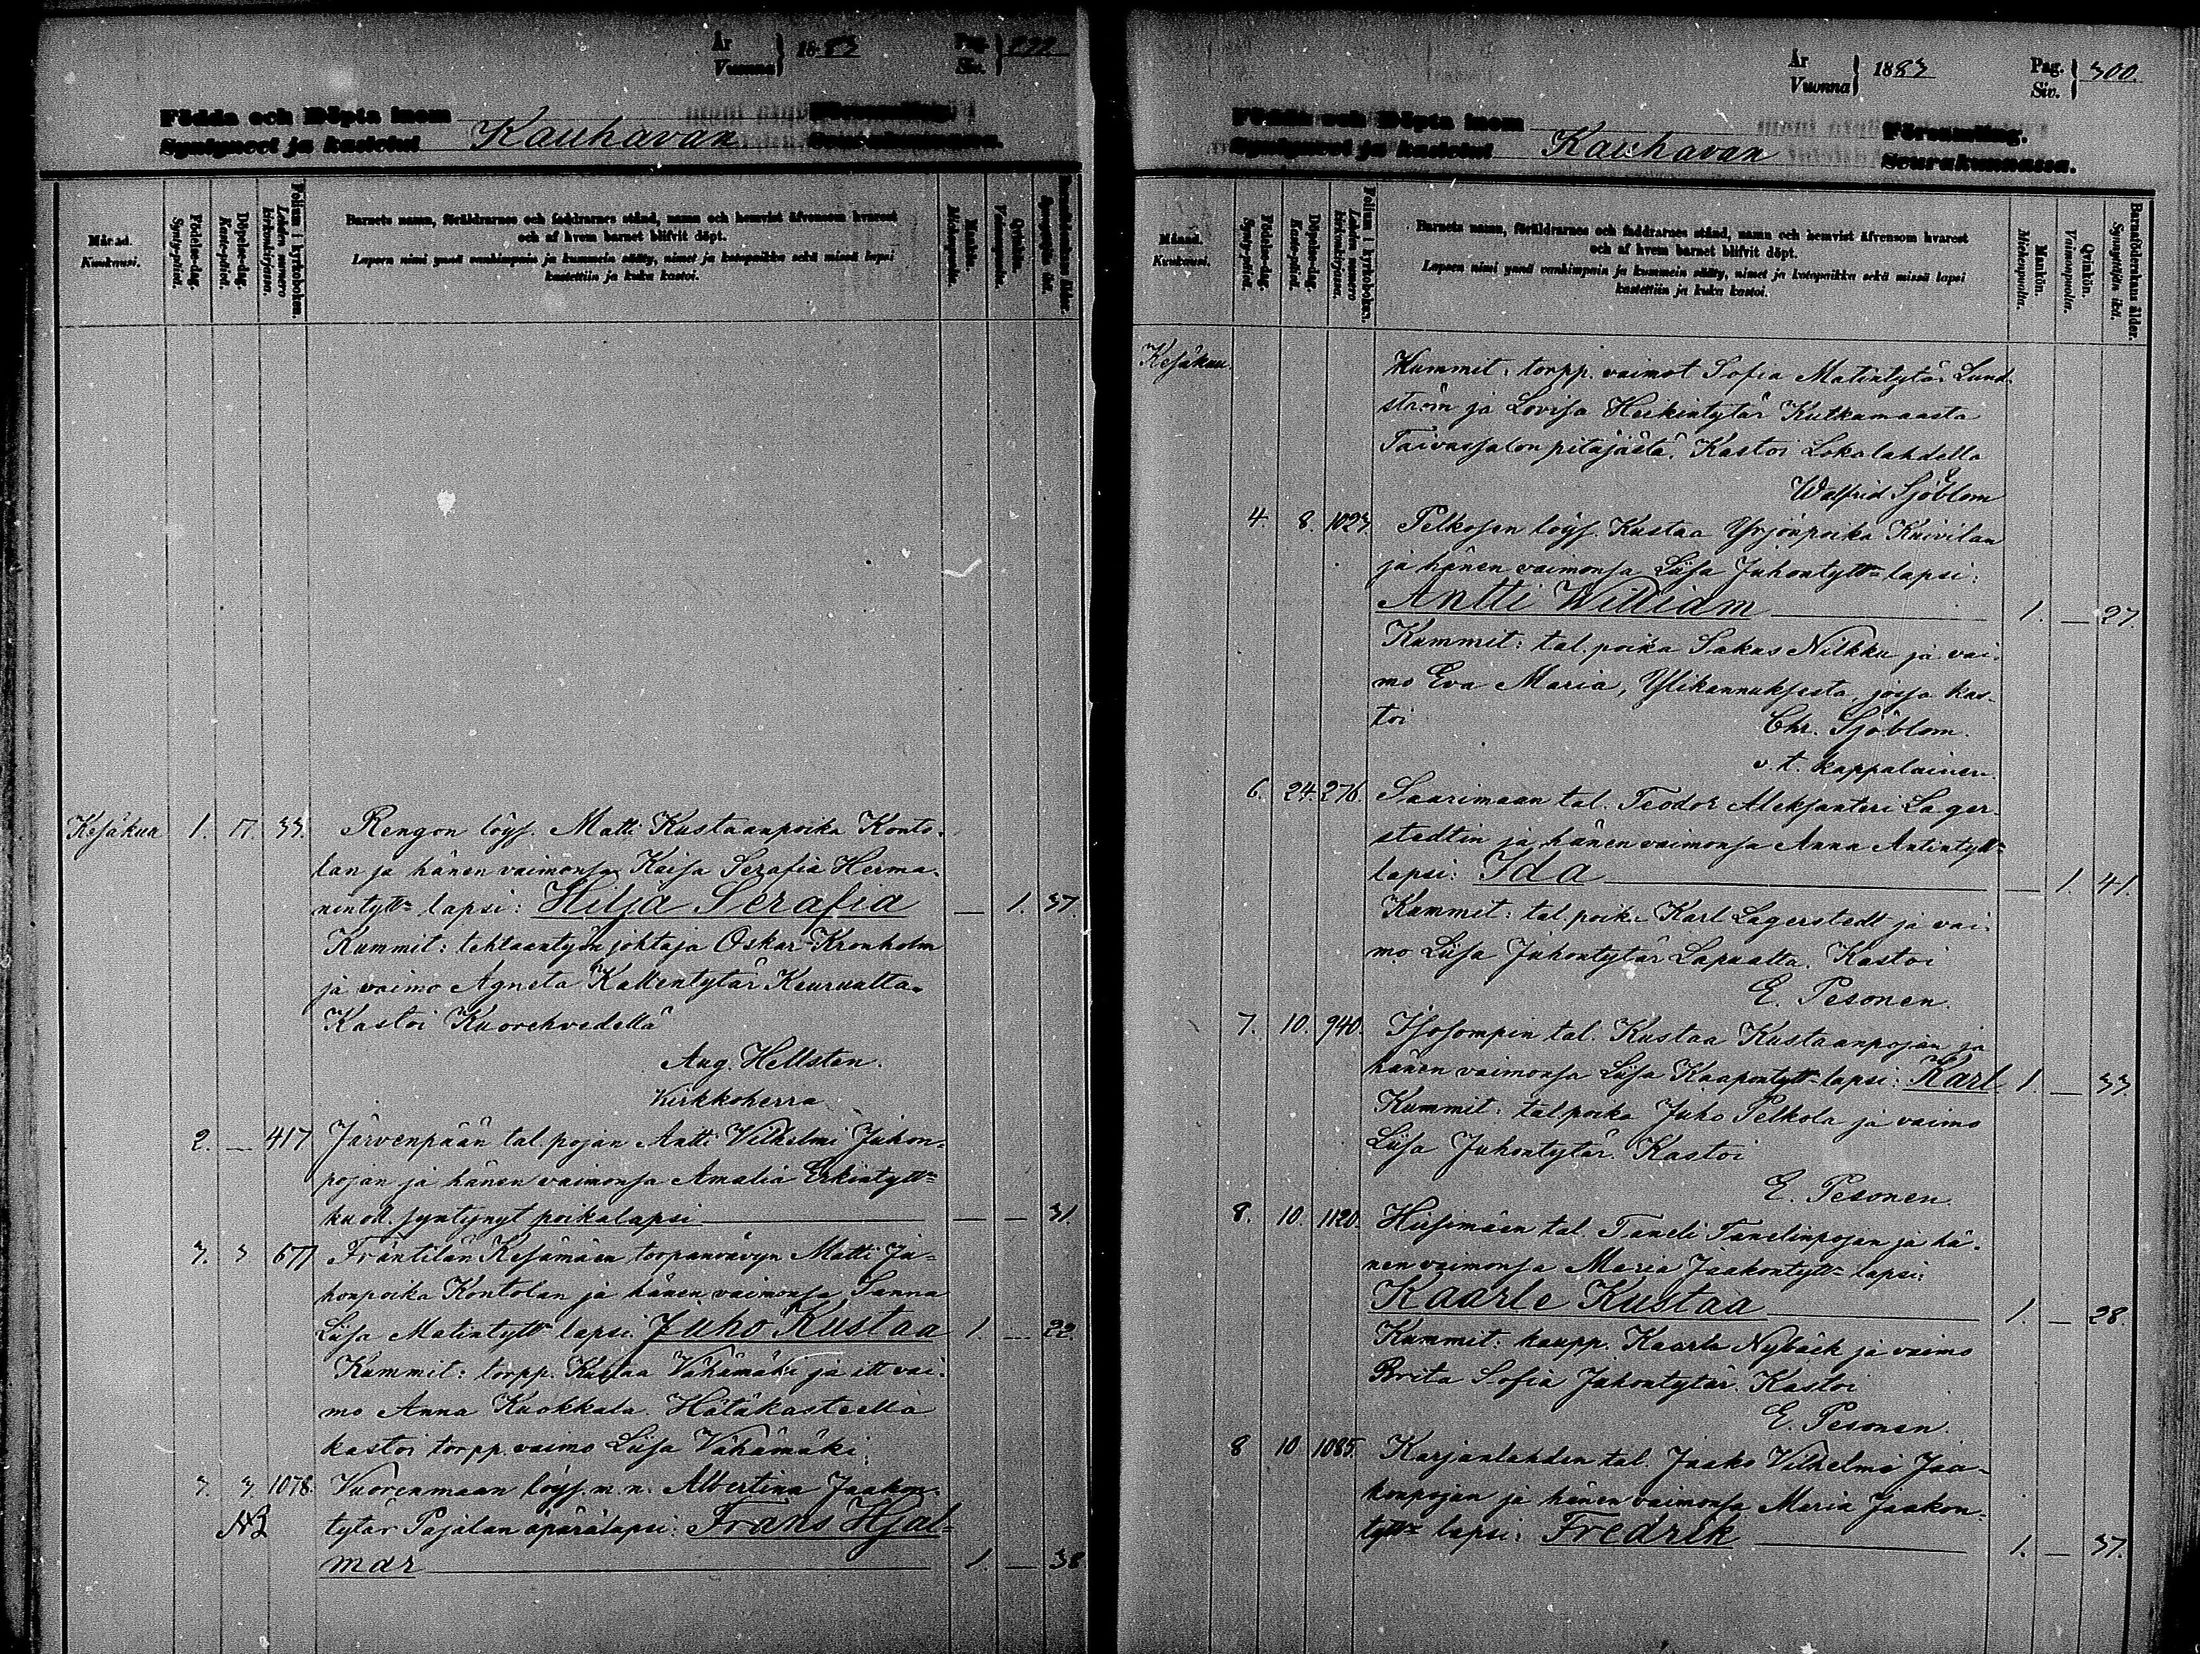 År
Vuonna } 1883
Pag.
Siv. } 299
Födda och Döpta inom
Syntyneet ja kastetut Kauhavan
Församling.
Seurakunnassa.
Månad.
Kuukausi.
Födelse-dag.
Syntypäivä.
Döpelse-dag.
Kaste-päivä.
Folium i kyrkoboken.
Lehden numero kirkonkirjassa.
Barnets namn, föräldrarnes och faddrarnes stånd, namn och hemvist äfvensom hvarest
och af hvem barnet blifvit döpt.
Lapsen nimi ynnä vanhimpain ja kummein sääty, nimet ja kotopaikka sekä missä lapsi
kastettiin ja kuka kastoi.
Mankön.
Miehenpuolta.
Qvinkön.
Vaimonpuolta.
Barnaföderskans ålder.
Synnyttäjän ikä.
Kesäkuu 1. 17. 33. Rengon löys. Matti Kustaanpoika Konto-
lan ja hänen vaimonsa Kaisa Serafia Herma-
nintytt= lapsi: Hilja Serafia — 1. 37.
Kummit: tehtaantyön johtaja Oskar Kronholm
ja vaimo Agneta Kallentytär Keuruulta.
Kastoi Kuorehvedellä
Aug. Hellsten.
Kirkkoherra
2. — 417 Järvenpään tal. pojan Antti Vilhelmi Juhon-
pojan ja hänen vaimonsa Amalia Erkintytt=
kuoll. syntynyt poikalapsi — — 31.
3. 3 677 Fräntilän Kesämäen torpanvävyn Matti Ju-
honpoika Kontolan ja hänen vaimonsa Sanna
Liisa Matintytt= lapsi: Juho Kustaa 1. — 22.
Kummit: torpp. Kustaa Vähämäki ja itt vai-
mo Anna Kuokkala. Hätäkasteella
kastoi torpp. vaimo Liisa Vähämäki.
3. 3. 1078. Vuorenmaan löys. m. n. Albertina Jaakon-
tytär Pajalan äpärälapsi: Frans Hjal-
mar 1. — 38
År
Vuonna } 1883
Pag.
Siv. } 300.
Födda och Döpta inom
Syntyneet ja kastetut Kauhavan
Församling.
Seurakunnassa.
Månad.
Kuukausi.
Födelse-dag.
Syntypäivä.
Döpelse-dag.
Kaste-päivä.
Folium i kyrkoboken.
Lehden numero kirkonkirjassa.
Barnets namn, föräldrarnes och faddrarnes stånd, namn och hemvist äfvensom hvarest
och af hvem barnet blifvit döpt.
Lapsen nimi ynnä vanhimpain ja kummein sääty, nimet ja kotopaikka sekä missä lapsi
kastettiin ja kuka kastoi.
Mankön.
Miehenpuolta.
Qvinkön.
Vaimonpuolta.
Barnaföderskans ålder.
Synnyttäjän ikä.
Kesäkuu. Kummit: torpp. vaimot Sofia Matintytär Lund-
ström ja Lovisa Heikintytär Kutkamaasta
Taivassalon pitäjästä. Kastoi Lokalahdella
Walfrid Sjöblom
4. 8. 1023. Pelkosen löys. Kustaa Yrjönpoika Kuivilan
ja hänen vaimonsa Liisa Juhontytt= lapsi:
Antti William 1. — 27.
Kummit: tal. poika Sakas Nilkku ja vai-
mo Eva Maria, Ylikannuksesta, jossa kas-
toi Chr. Sjöblom.
v. t. kappalainen.
6. 24. 276. Saarimaan tal. Teodor Aleksanteri Lager-
stedtin ja hänen vaimonsa Anna Antintytt=
lapsi: Ida — 1. 41.
Kummit: tal. poika Karl Lagerstedt ja vai-
mo Liisa Juhontytär Lapualta. Kastoi
E. Pesonen.
7. 10. 940. Isosompin tal. Kustaa Kustaanpojan ja
hänen vaimonsa Liisa Kaapontytt= lapsi: Karl 1. — 33.
Kummit: tal. poika Juho Pelkola ja vaimo
Liisa Juhontytär. Kastoi
E. Pesonen.
8. 10. 1120. Hiisimäen tal. Taneli Tanelinpojan ja hä-
nen vaimonsa Maria Jaakontytt= lapsi:
Kaarle Kustaa 1. — 28.
Kummit: kaupp. Kaarle Nybäck ja vaimo
Brita Sofia Juhontytär. Kastoi
E. Pesonen.
8 10 1085. Karjanlahden tal. Jaako Vilhelmi Jaa-
konpojan ja hänen vaimonsa Maria Jaakon-
tytt= lapsi: Fredrik 1. — 37.